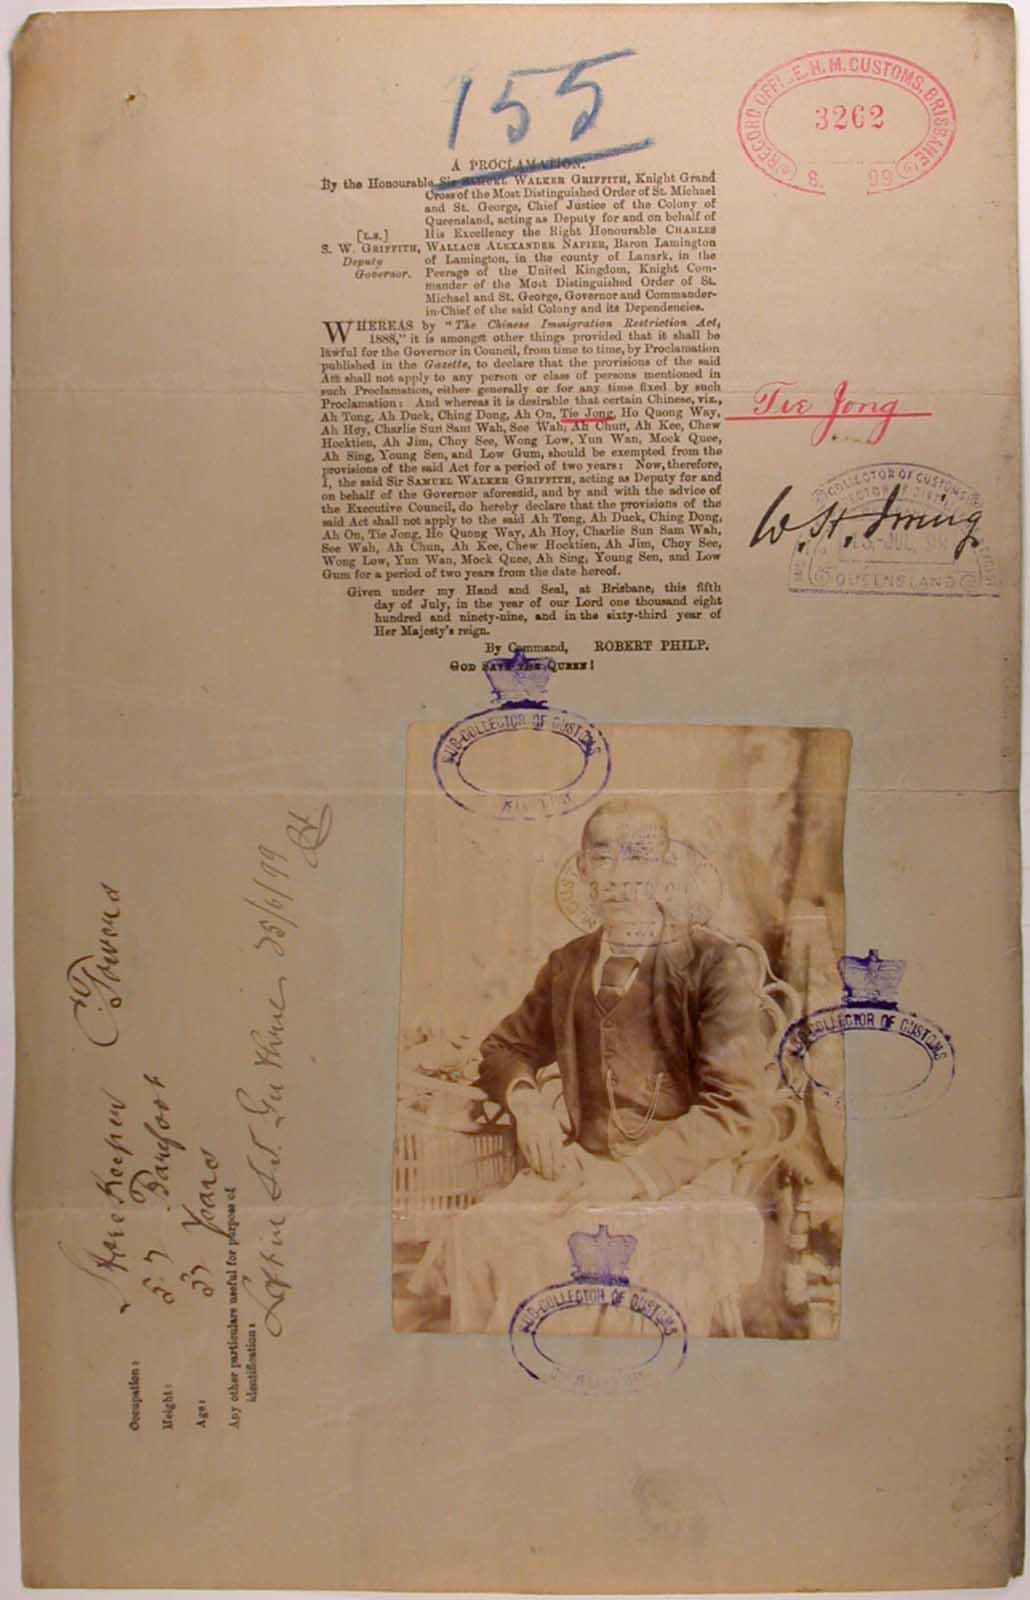 155
RECORD OFFICE, H. M. CUSTOMS, BRISBANE
3262
8. 99
A PROCLAMATION.
By the Honourable Sir SAMUEL WALKER GRIFFITH, Knight Grand
Cross of the Most Distinguished Order of St. Michael
and St. George, Chief Justice of the Colony of
Queensland, acting as Deputy for and on behalf of
[L.S.] His Excellency the Right Honourable CHARLES
S. W. GRIFFITH, WALLACE ALEXANDER NAPIER, Baron Lamington
Deputy of Lamington, in the county of Lanark, in the
Governor. Peerage of the United Kingdom, Knight Com-
mander of the Most Distinguished Order of St.
Michael and St. George, Governor and Commander-
in-Chief of the said Colony and its Dependencies.
WHEREAS by "The Chinese Immigration Restriction Act,
1888," it is amongst other things provided that it shall be
lawful for the Governor in Council, from time to time, by Proclamation
published in the Gazette, to declare that the provisions of the said
Act shall not apply to any person or class of persons mentioned in
such Proclamation, either generally or for any time fixed by such
Proclamation: And whereas it is desirable that certain Chinese, viz.,
Ah Tong, Ah Duck, Ching Dong, Ah On, Tie Jong, Ho Quong Way,
Ah Hoy, Charlie Sun Sam Wah, See Wah, Ah Chun, Ah Kee, Chew
Hocktien, Ah Jim, Choy See, Wong Low, Yun Wan, Mock Quee,
Ah Sing, Young Sen, and Low Gum, should be exempted from the
provisions of the said Act for a period of two years: Now, therefore,
I, the said Sir SAMUEL WALKER GRIFFITH, acting as Deputy for and
on behalf of the Governor aforesaid, and by and with the advice of
the Executive Council, do hereby declare that the provisions of the
said Act shall not apply to the said Ah Tong, Ah Duck, Ching Dong,
Ah On, Tie Jong, Ho Quong Way, Ah Hoy, Charlie Sun Sam Wah,
See Wah, Ah Chun, Ah Kee, Chew Hocktien, Ah Jim, Choy See,
Wong Low, Yun Wan, Mock Quee, Ah Sing, Young Sen, and Low
Gum for a period of two years from the date hereof.
Given under my Hand and Seal, at Brisbane, this fifth
day of July, in the year of our Lord one thousand eight
hundred and ninety-nine, and in the sixty-third year of
Her Majesty's reign.
By Command, ROBERT PHILP.
GOD SAVE THE QUEEN!
Tie Jong
COLLECTOR OF CUSTOMS
W. H. Irving
JUL. 99
QUEENSLAND
SUB-COLLECTOR OF CUSTOMS
SUB-COLLECTOR OF CUSTOMS
SUB-COLLECTOR OF CUSTOMS
Occupation: Store Keeper C. Towers
Height: 5.7 Barefoot
Age: 37 Years
Any other particulars useful for purpose of
identification:
25/6/99